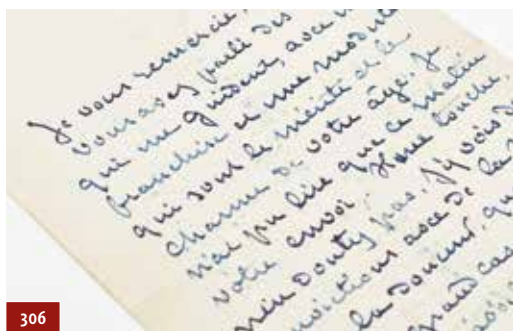 Je vous remercie,
vous avez parlé des
qui me guident, avec u
franchise et une modestie
qui sont le mérite et le
charme de votre âge. Je
n'ai pu lire que ce matin
votre envoi. Il me touche,
n'en doutez pas. J'y vois de
avec de la
la douceur, que
grand cas
306